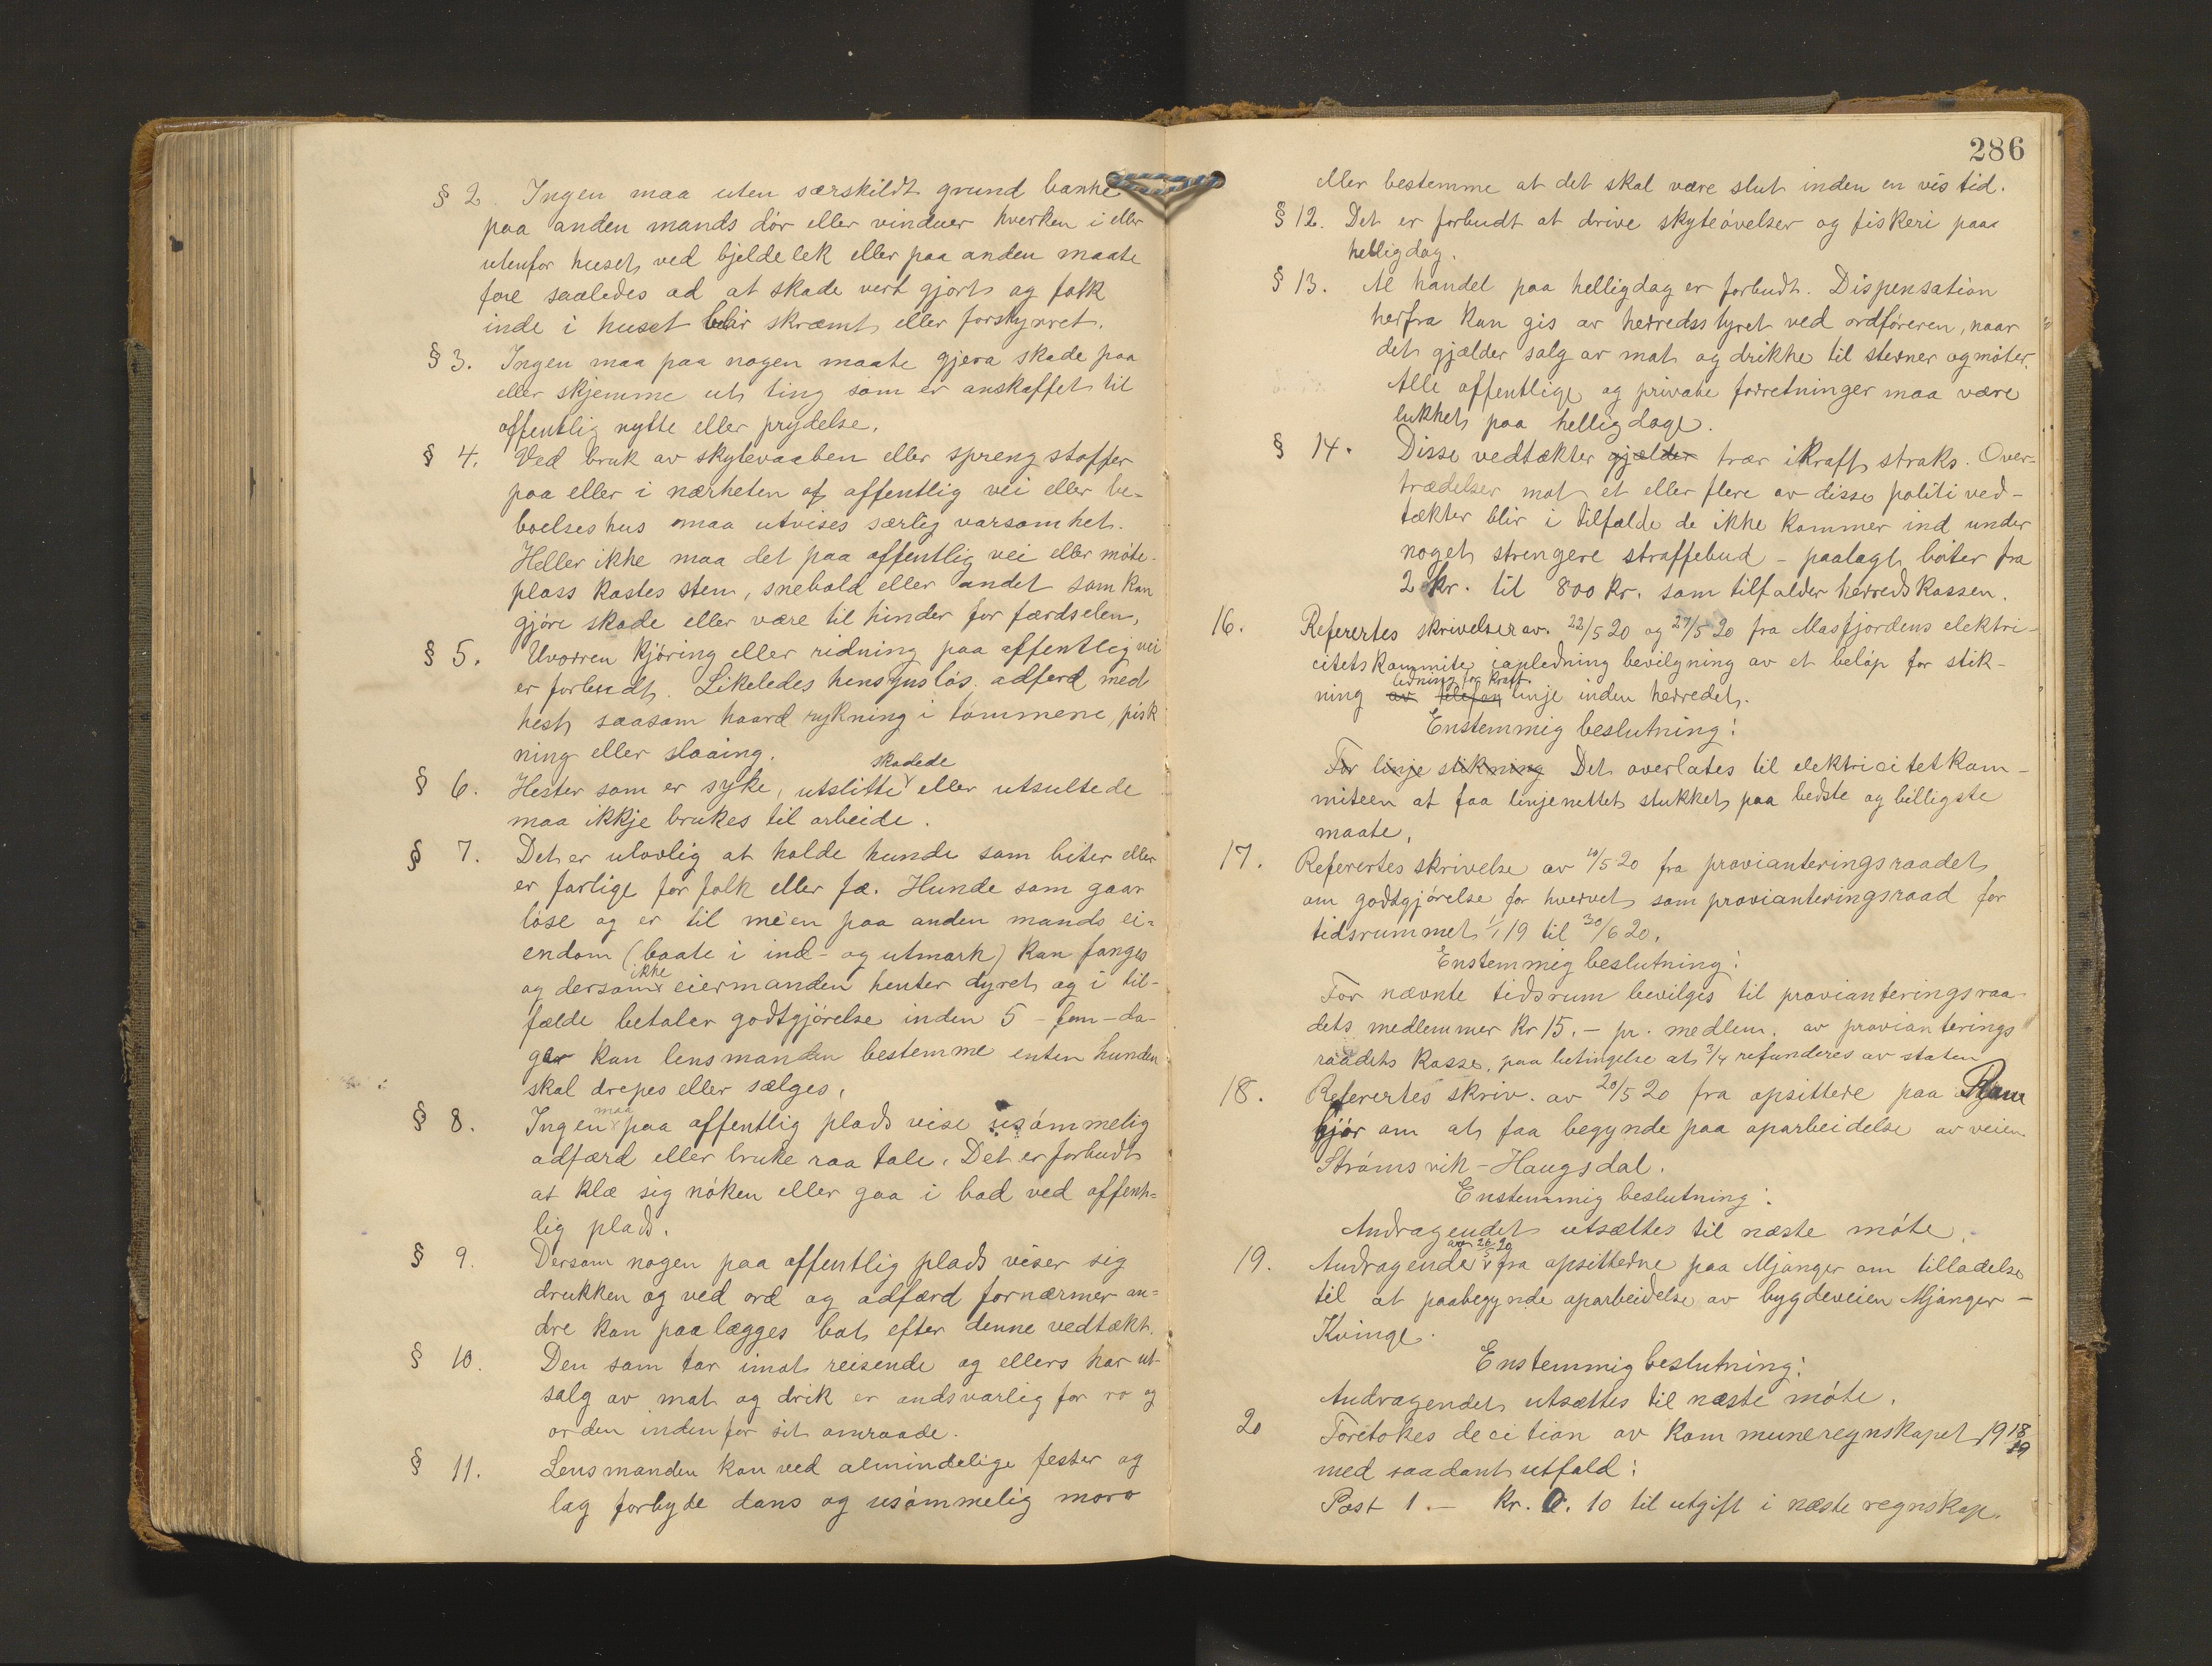 § 2. Ingen maa uten særskildt grund banke
paa anden mands dör eller vinduer hverken i eller
utenfor huset, ved bjeldelek eller paa anden maate
fare saaledes ad at skade vert gjort og folk
inde i huset blir skræmt eller forstyrret.
§ 3. Ingen maa paa nogen maate gjera skade paa
eller skjemme ut ting som er anskaffet til
offentlig nytte eller prydelse.
§ 4. Ved bruk av skytevaaben eller sprengstoffer
paa eller i nærheten af offentlig vei eller be-
boelseshus maa utvises særlig varsomhet.
Heller ikke maa det paa offentlig vei eller möte-
plass kastes sten, snebold eller andet som kan
gjöre skade eller være til hinder for færdselen.
§ 5. Uvorren kjöring eller ridning paa offentlig vei
er forbudt. Likeledes hensynslös adferd med
hest saasom haard rykning i tömmene, pisk
ning eller slaaing.
skadede
§ 6. Hester som er syke, utslitte eller utsultede
maa ikkje brukes til arbeide.
§ 7. Det er ulovlig at holde hunde som biter eller
er farlige for folk eller fæ. Hunde som gaar
löse og er til meen paa anden mands ei-
endom (baate i ind- og utmark) kan fanges
ikke
og dersom eiermanden henter dyret og i til-
fælde betaler godtgjörelse inden 5 - fem - da-
ger kan lensmanden bestemme enten hunden
skal drepes eller sælges.
maa
§ 8. Ingen paa offentlig plads vise usömmelig
adfærd eller bruke raa tale. Det er forbudt
at klæ sig nöken eller gaa i bad ved offent-
lig plads.
§ 9. Dersom nogen paa offentlig plads viser sig
drukken og ved ord og adfærd fornærmer an-
dre kan paalægges bot efter denne vedtækt.
§ 10. Den som tar imot reisende og ellers har ut-
salg av mat og drik er andsvarlig for ro og
orden indenfor sit omraade.
§ 11. Lensmanden kan ved almindelige fester og
lag forbyde dans og usömmelig moro
286
eller bestemme at det skal være slut inden en vis tid.
§ 12. Det er forbudt at drive skyteövelser og fiskeri paa
helligdag.
§ 13. Al handel paa helligdag er forbudt. Dispensation
herfra kan gis av herredsstyret ved ordföreren, naar
det gjælder salg av mat og drikke til stevner og möter.
Alle offentlige og private forretninger maa være
lukket paa helligdage.
§ 14. Disse vedtækter gjælder trær ikraft straks. Over-
trædelser mot et eller flere av disse politived-
tækter blir i tilfælde de ikke kommer ind under
noget strengere straffebud - paalagt böter fra
2 kr. til 800 kr. som tilfalder herredskassen.
16. Referertes skrivelser av. 22/5 20 og 27/5 20 fra Masfjordens elektri-
citetskommite i anledning bevilgning av et belöp for stik-
ledning for kraft
ning av telefon linje inden herredet.
Enstemmig beslutning:
For linje stikning Det overlates til elektricitetkom-
miteen at faa linjenettet stukket paa bedste og billigste
maate.
17. Referertes skrivelse av 10/5 20 fra provianteringsraadet
om godtgjörelse for hvervet som provianteringsraad for
tidsrummet 1/1 19 til 30/6 20.
Enstemmig beslutning:
For nævnte tidsrum bevilges til provianteringsraa-
dets medlemmer kr 15.- pr. medlem. av provianterings
raadets kasse, paa betingelse at 3/4 refunderes av staten
18. Referertes skriv. av 20/5 20 fra opsittere paa
om at faa begynde paa oparbeidelse av veien
Strömsvik - Haugsdal.
Enstemmig beslutning:
Andragendet utsættes til næste möte.
av 26/5 20
19. Andragende fra opsitterne paa Mjanger om tilladelse
til at paabegynde oparbeidelse av bygdeveien Mjanger -
Kvinge.
Enstemmig beslutning:
Andragendet utsættes til næste möte.
20 Foretokes decition av kommuneregnskapet 1918/19
med saadant utfald:
Post 1. - Kr. 0.10 til utgift i næste regnskap.